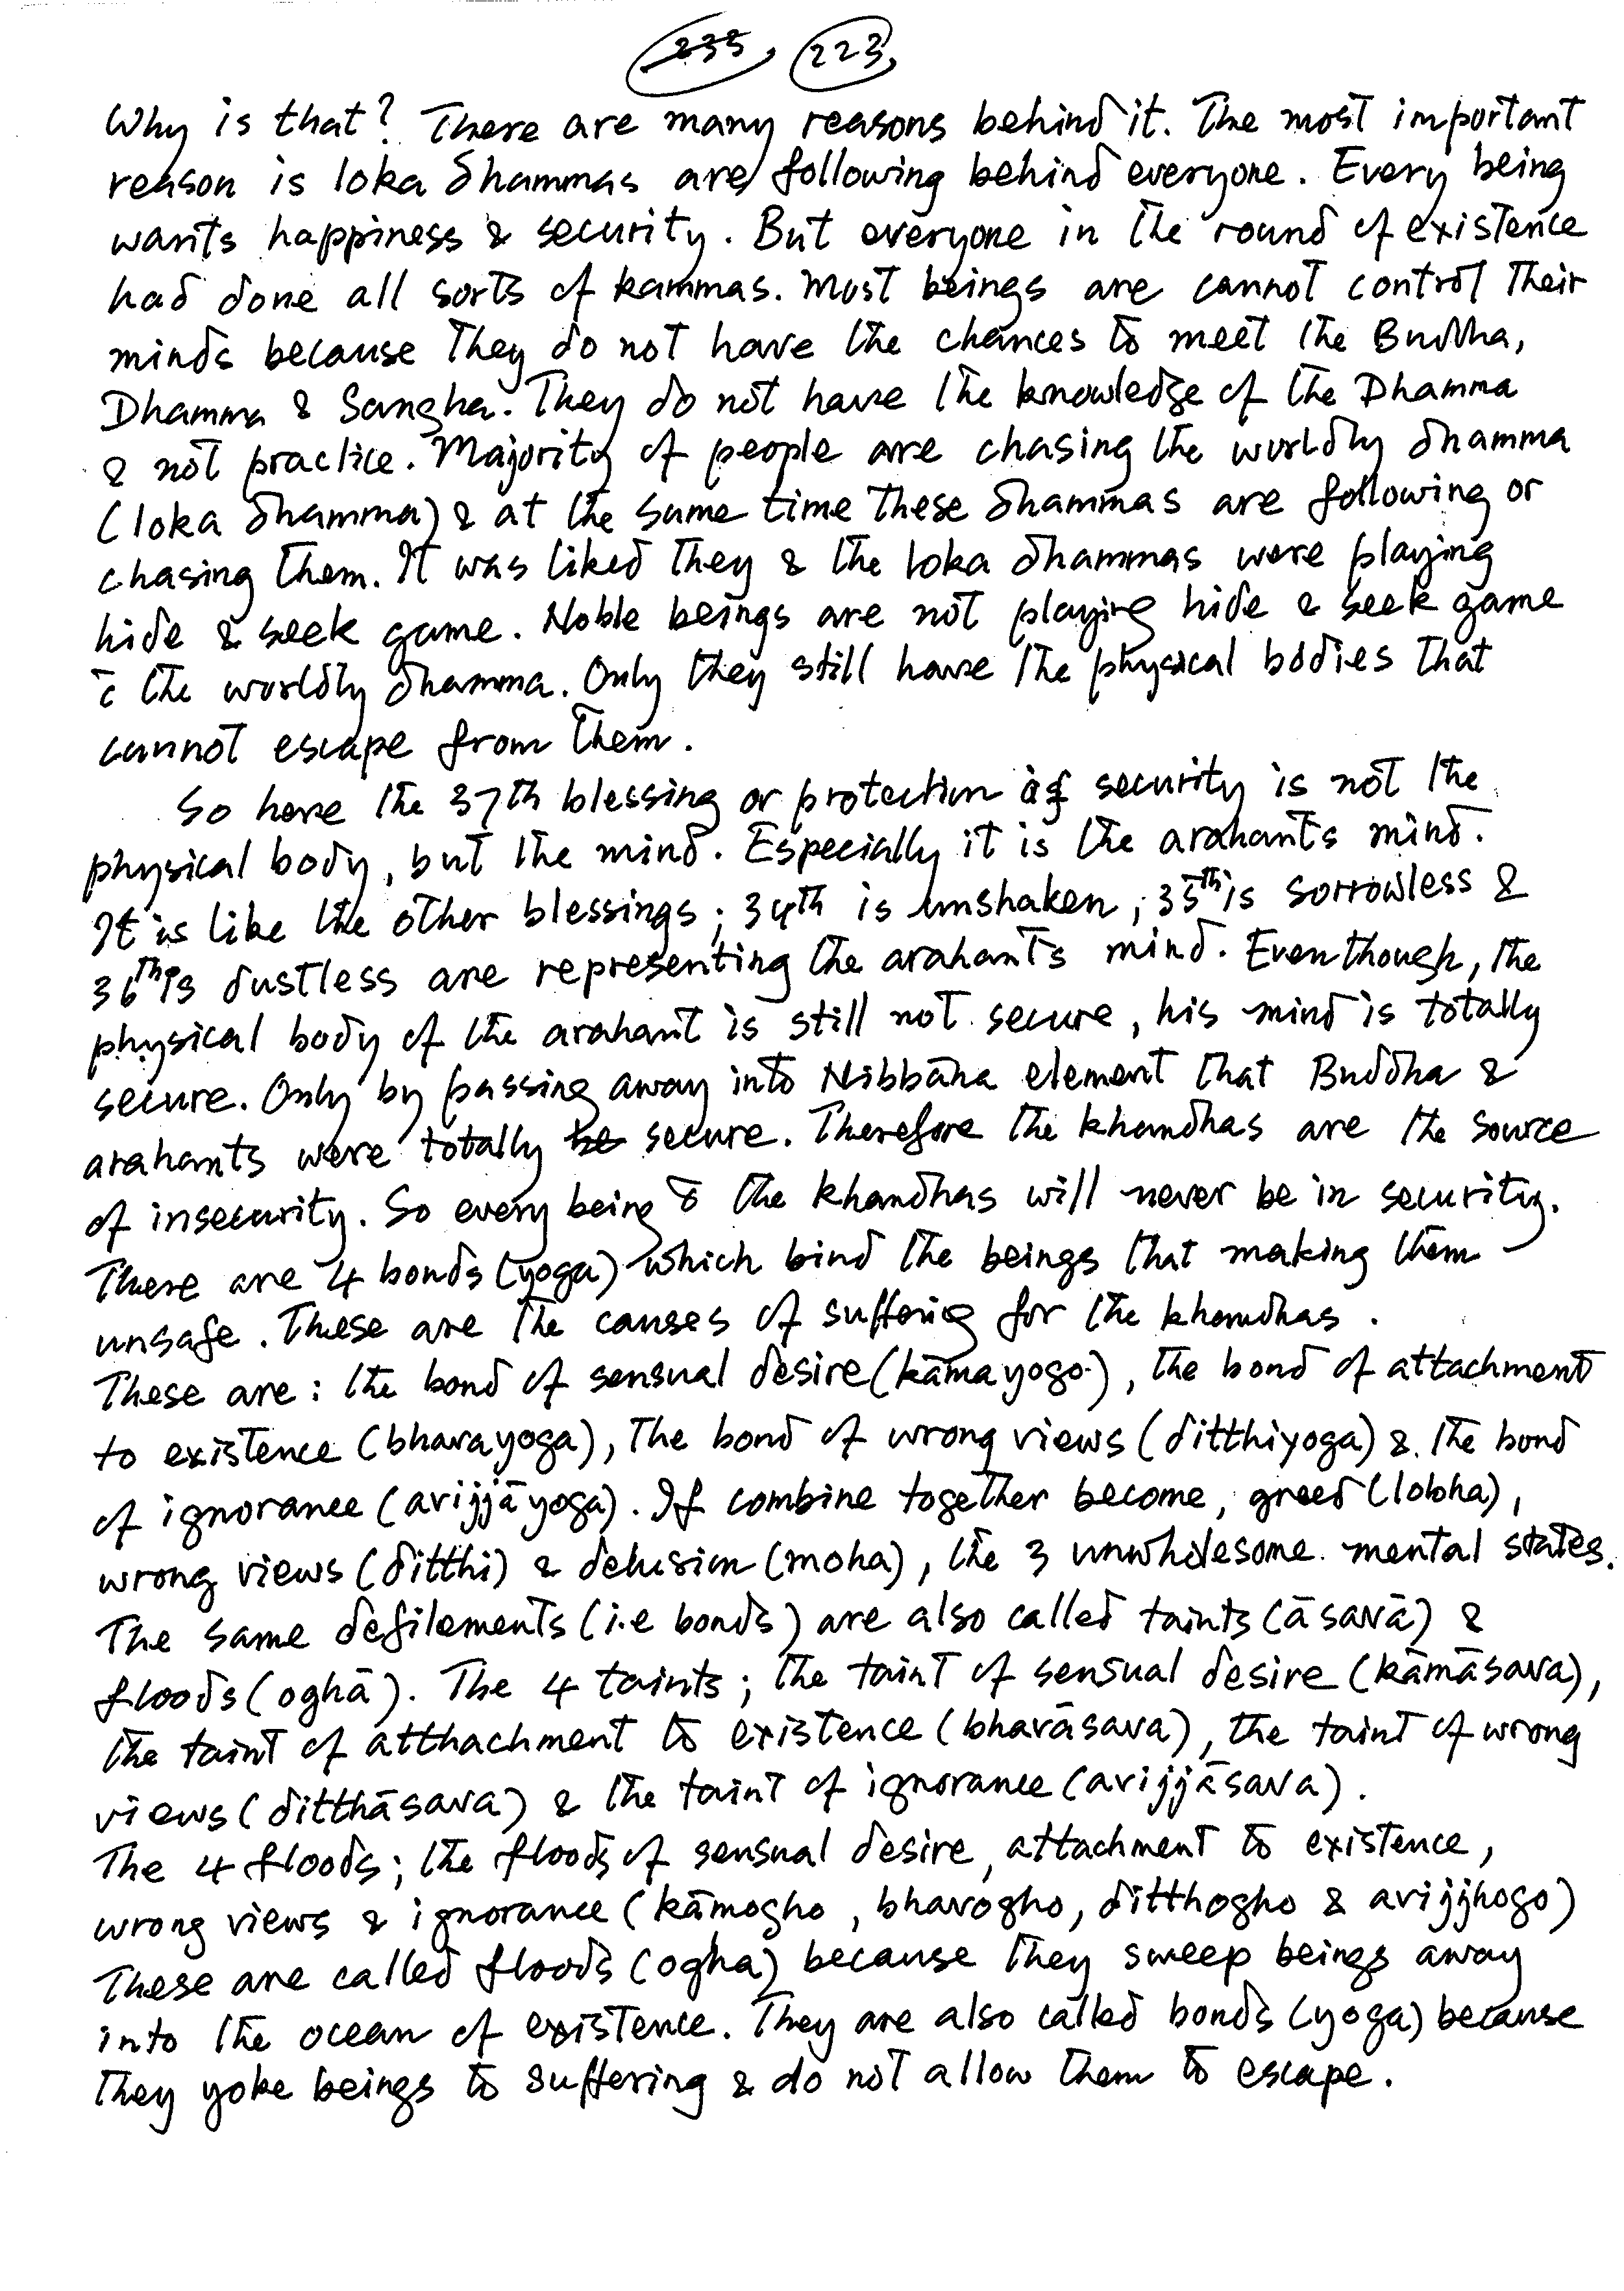 235, 223,
Why is that? There are many reasons behind it. The most important
reason is loka dhammas are following behind everyone. Every being
wants happiness & security. But everyone in the round of existence
had done all sorts of kammas. Most beings are cannot control their
minds because they do not have the chances to meet the Buddha,
Dhamma & Sangha. They do not have the knowledge of the Dhamma
& not practice. Majority of people are chasing the worldly dhamma
(loka dhamma) & at the same time these dhammas are following or
chasing them. It was liked they & the loka dhammas were playing
hide & seek game. Noble beings are not playing hide & seek game
c̄ the worldly dhamma. Only they still have the physical bodies that
cannot escape from them.
So here the 37th blessing or protection of security is not the
physical body, but the mind. Especially it is the arahants mind.
It is like the other blessings; 34th is unshaken, 35th is sorrowless &
36th is dustless are representing the arahants mind. Eventhough, the
physical body of the arahant is still not secure, his mind is totally
secure. Only by passing away into Nibbāna element that Buddha &
arahants were totally be secure. Therefore the khandhas are the source
of insecurity. So every being c̄ the khandhas will never be in security.
There are 4 bonds (yoga) which bind the beings that making them
unsafe. These are the causes of suffering for the khandhas.
These are: the bond of sensual desire (kāmayogo), the bond of attachment
to existence (bhavayoga), the bond of wrong views (ditthiyoga) & the bond
of ignorance (avijjāyoga). If combine together become, greed (lobha),
wrong views (ditthi) & delusion (moha), the 3 unwholesome mental states.
The same defilements (i.e bonds) are also called taints (āsavā) &
floods (oghā). The 4 taints; the taint of sensual desire (kāmāsava),
the taint of atthachment to existence (bhavāsava), the taint of wrong
views (ditthāsava) & the taint of ignorance (avijjāsava).
The 4 floods; the floods of sensual desire, attachment to existence,
wrong views & ignorance (kāmogho, bhavogho, ditthogho & avijjhogo)
These are called floods (ogha) because they sweep beings away
into the ocean of existence. They are also called bonds (yoga) because
they yoke beings to suffering & do not allow them to escape.